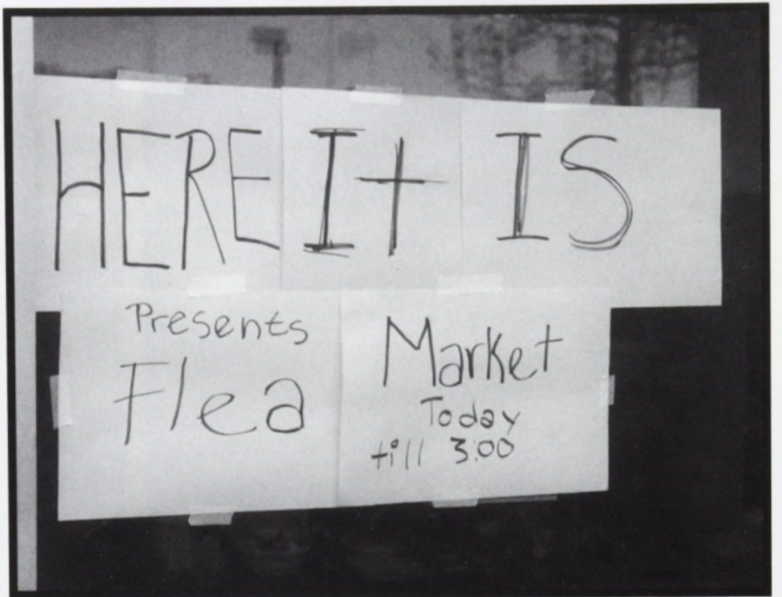 HERE It IS
Presents
Flea Market
Today
till 3:00